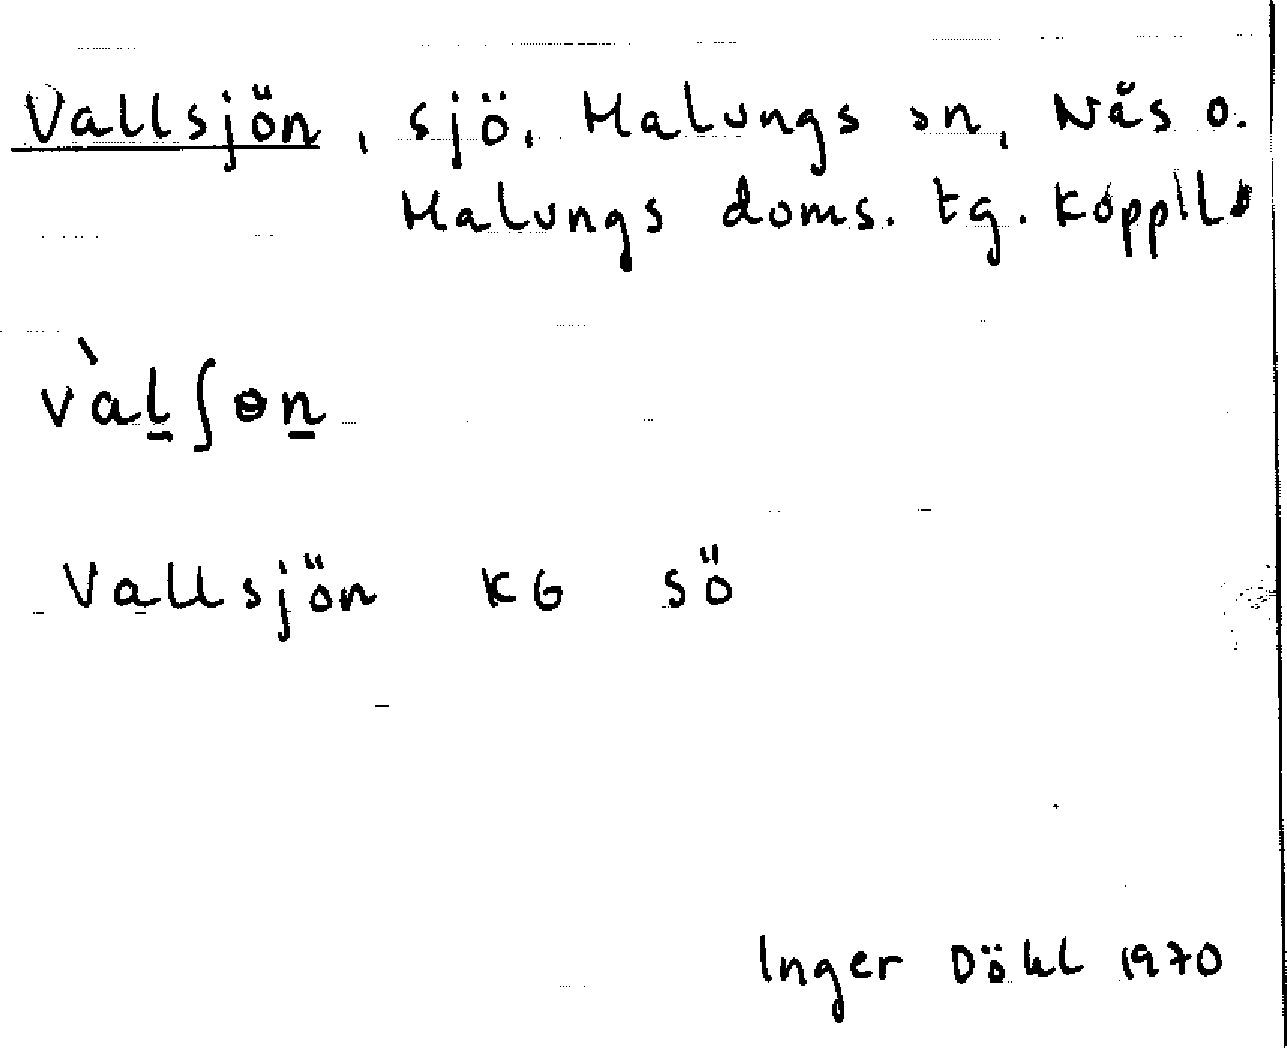 Vallsjön, sjö, Malungs sn, Nås o.
Malungs doms. tg. Kopp ll
vàl̲ʃɵn̲
Vallsjön KG Sö
Inger Döhl 1970